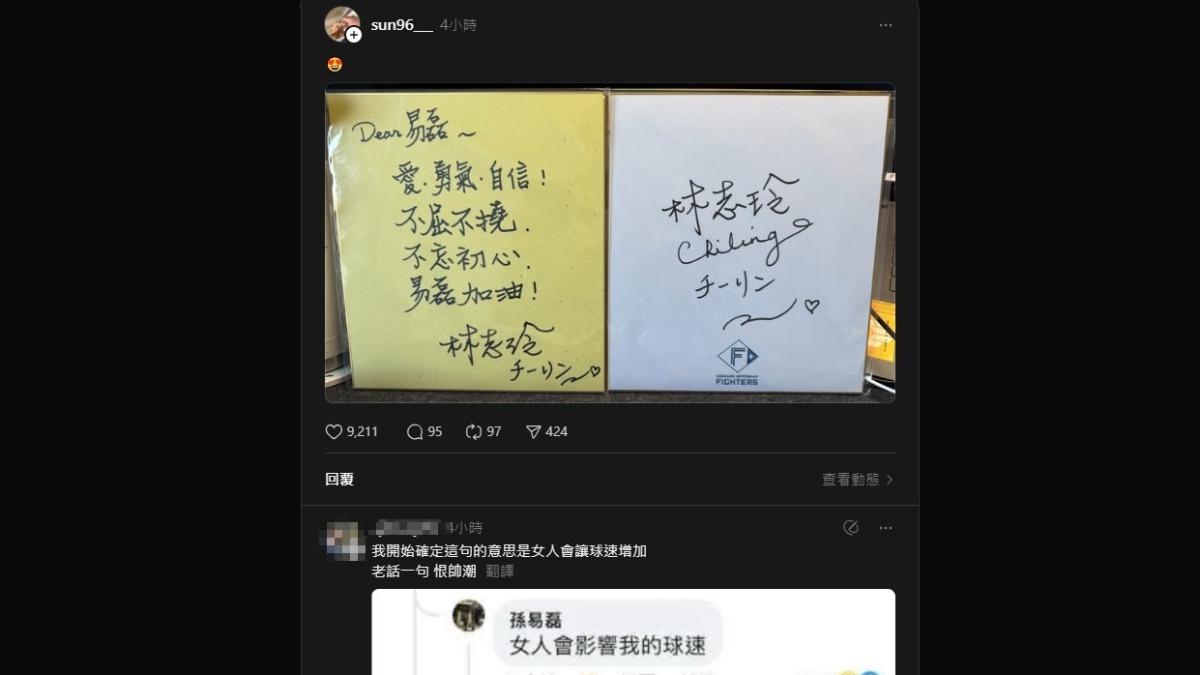 sun96___ 4小時
Dear 易磊~
愛·勇氣·自信!
不屈不撓.
不忘初心.
易磊加油!
林志玲
チーリン
林志玲
Chiling
チーリン
FIGHTERS
9,211 95 97 424
回覆 查看動態
4小時
我開始確定這句的意思是女人會讓球速增加
老話一句 恨師潮 翻譯
孫易磊
女人會影響我的球速